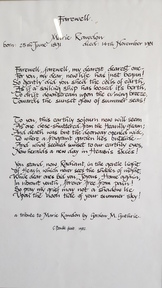 Farewell
Marie Rowdon
born: 25th June 1891 died: 14th November 1981
Farewell, farewell, my dearest dearest one.
For you, my dear, new life has just begun!
So gently did you shed the coils of earth,
As if a sailing ship has loosed its berth
To drift downstream upon the evening breeze,
Towards the sunset glow of summer seas!
To you, this earthly sojourn now will seem
As one cloud-shuttered from the heavenly
And death was but the doorway opened wide
To where a fragrant garden lies outside
And what seemed sunset to our earthly eyes,
Now heralds a new day in Heaven's skies!
You stand now Radiant, in the gentle light
of Heaven which never sees the shades of night
While dear ones bid you, Home again,
In vibrant youth, forever free from pain!
So may my grief now not a shadow lie
Upon the noontide of your summer sky.
a tribute to Marie Rowdon by Gordon M. Guthrie.